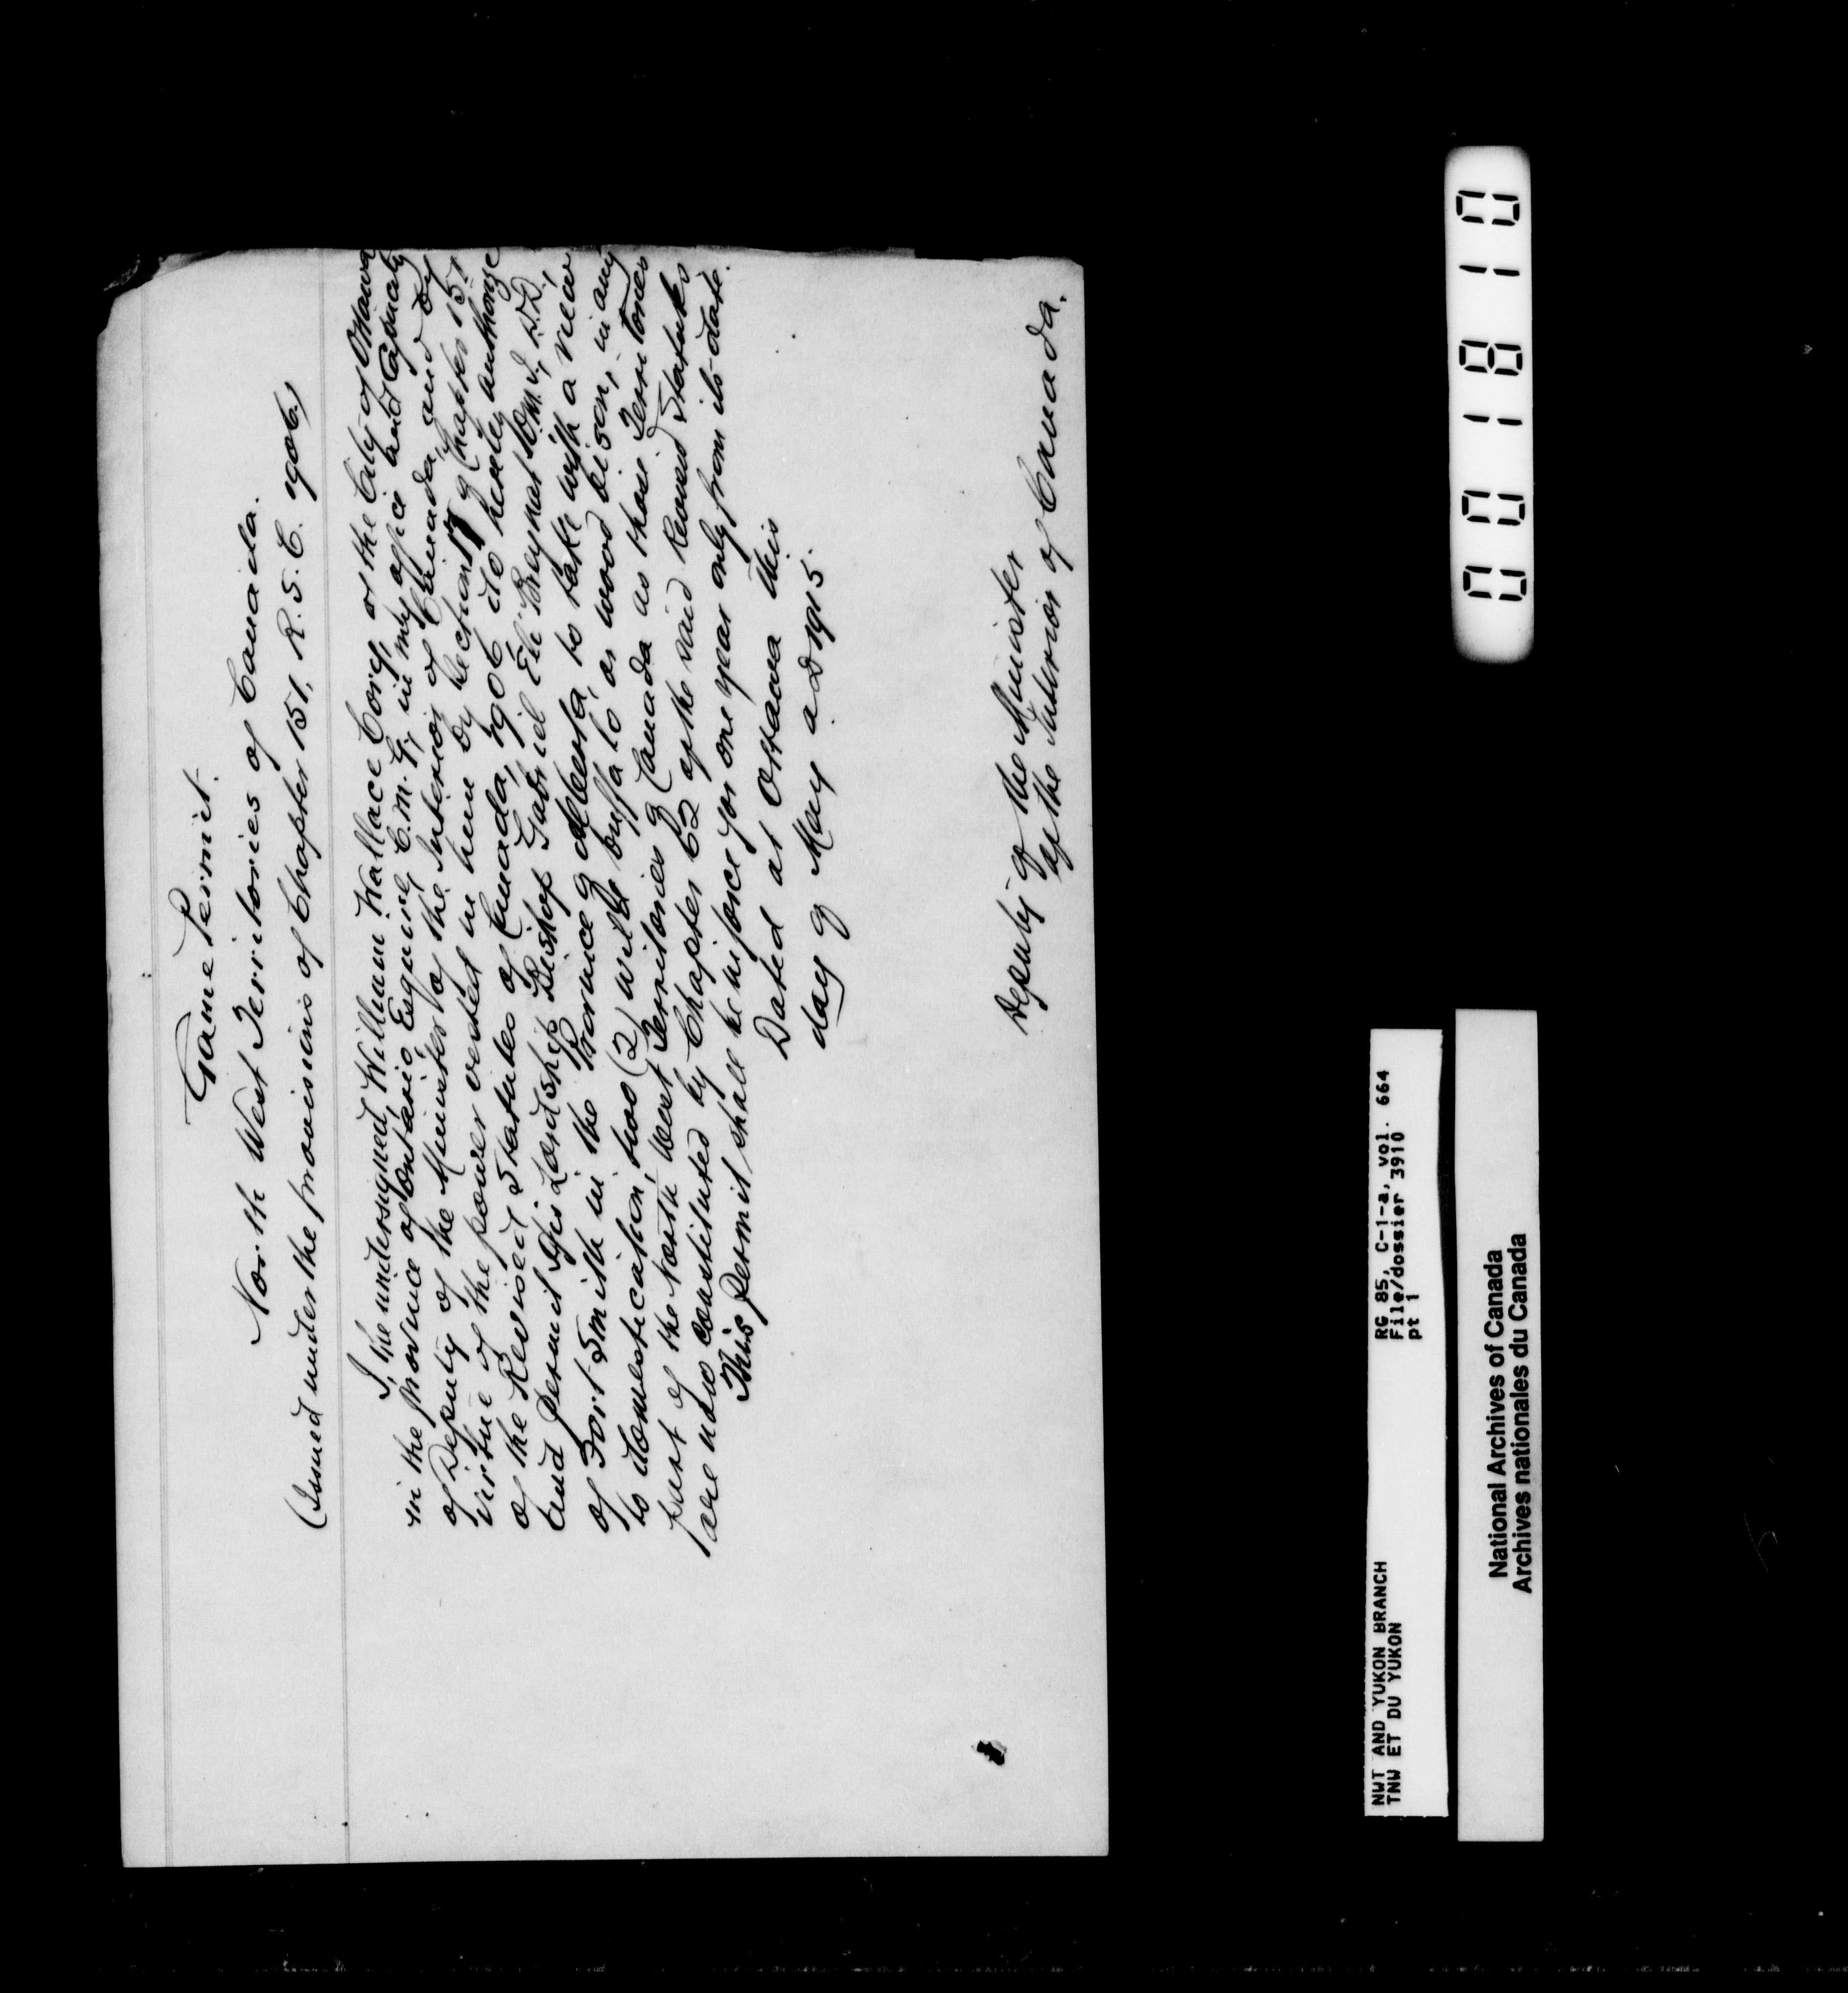 Game Permit.
North West Territories of Canada.
(Issued under the provisions of Chapter 151, R. S. C. 1906.)
I, the undersigned, William Wallace Cory, of the City of Ottawa
in the province of Ontario, Esquire, C.M.G., in my office and capacity
of Deputy of the Minister of the Interior of Canada, and by
virtue of the power vested in him by Section 17 of Chapter 151
of the Revised Statutes of Canada, 1906 do hereby authorize
and permit His Lordship Bishop Gabriel Eli Breynat O.M.I., D.D.,
of Fort Smith in the Province of Alberta, to take with a view
to domestication, two (2) wild buffalo or wood bison, in any
part of the North West Territories of Canada as those Territories
are now constituted by Chapter 62 of the said Revised Statutes
This Permit shall be in force for one year only from its date.
Dated at Ottawa this
day of May a.D 1915.
Deputy of the Minister
of the Interior of Canada.
NWT AND YUKON BRANCH RG 85, C-1-a, vol. 664
TNW ET DU YUKON File/dossier 3910
pt 1
National Archives of Canada
Archives nationales du Canada
001810